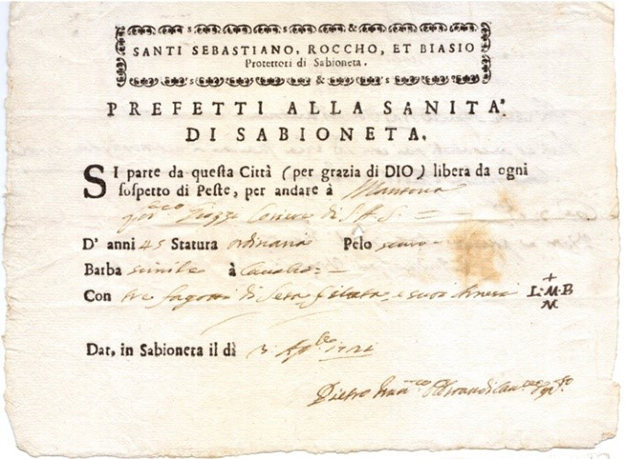 SANTI SEBASTIANO, ROCCHO, ET BIASIO
Protettori di Sabioneta.
PREFETTI ALLA SANITA'
DI SABIONETA.
SI parte da questa Città (per grazia di DIO) libera da ogni
sospetto di Peste, per andare à Mantova
D' anni 45 Statura ordinaria Pelo scuro
Barba simile à Cavallo
Con tre fagotti di Seta filata, e suoi Arnesi L. M. B
Dat, in Sabioneta il dì 3
Pietro